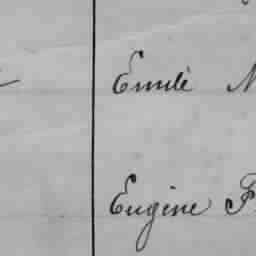 Emile N
Eugène F